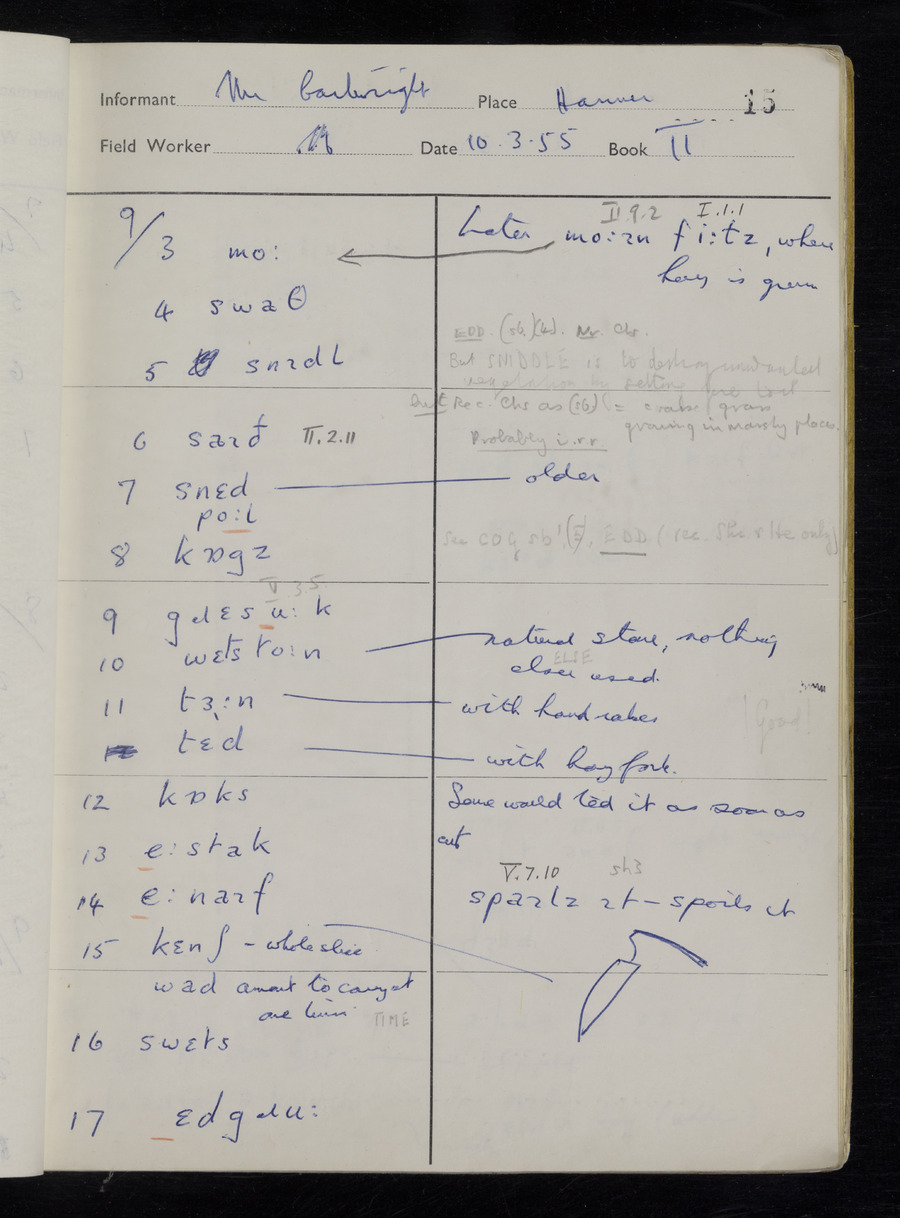 Informant Mr Cartwright Place Hanmer 15
Field Worker Date 10.3.55 Book II
9/3 mo:
II.9.2 I.1.1
Later mo:ɪn fi:ɫz, where
hay is grown
4 swaθ
5 snɪdɫ
EDD. (sb.)(4). Nr. Chs.
But SNIDDLE is to destroy unwanted
vegetation by setting fire to it
Rec. Chs as (sb) = coarse grass
growing in marshy places.
Probably i.r.r
6 saɪð II.2.11
7 snɛd — older
pɔ:ɫ
8 kɒgz
See COG sb¹. EDD (rec. Shr & He only)
V 3.5
9 gɹɛsu:k
10 wɛtsto:n — natural stone, nothing
else used.
ELSE
11 tɜ:n — with hand rakes
Good!
tɛd — with hay fork.
12 kɒks
Some would ted it as soon as
cut
13 e:stak
14 e:naɪf
V.7.10
spaɪlz ɪt — spoils it
15 kɛnʃ — whole slice
wad amount to carry at
one time
TIME
16 swɛts
17 ɛdgɹu: